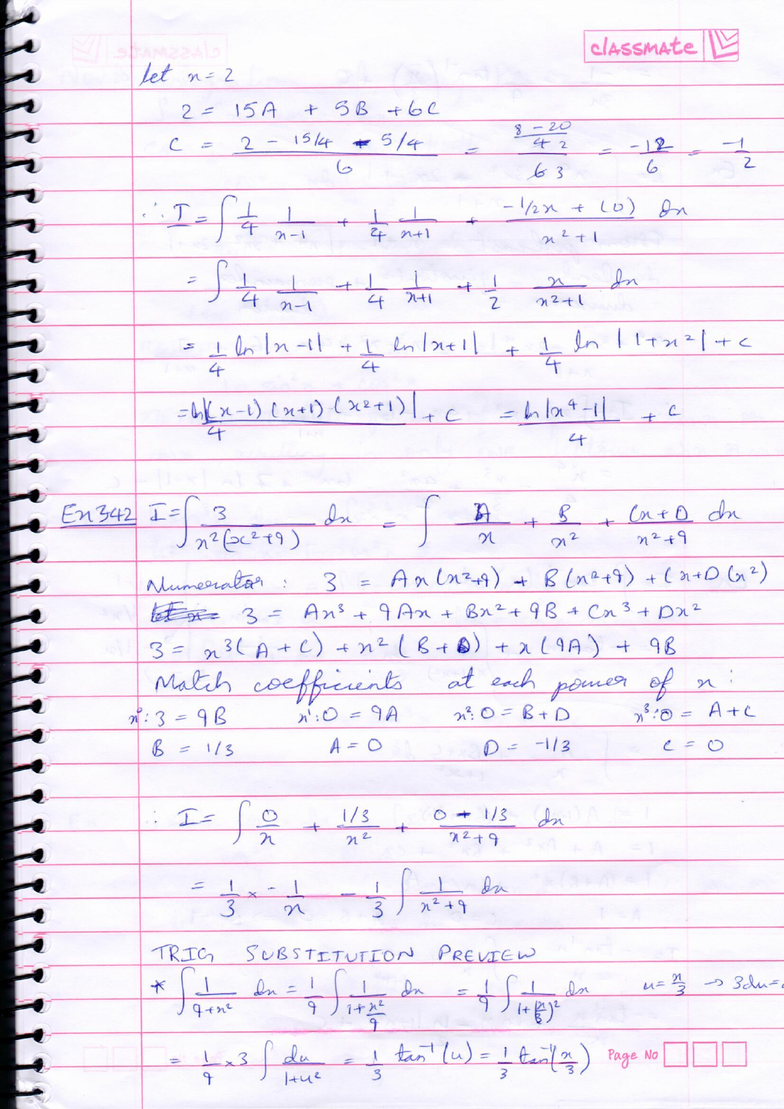 classmate
let x = 2
2 = 15A + 5B + 6C
C = (2 - 15/4 - 5/4)/6 = ((8 - 20)/4 2)/(6 3) = -12/6 = -1/2
∴ I = ∫ 1/4 1/(x-1) + 1/4 1/(x+1) + (-1/2x + (0))/(x²+1) dx
= ∫ 1/4 1/(x-1) + 1/4 1/(x+1) + 1/2 x/(x²+1) dx
= 1/4 ln|x-1| + 1/4 ln|x+1| + 1/4 ln|1+x²| + c
= ln|(x-1)(x+1)(x²+1)|/4 + C = ln|x⁴-1|/4 + C
Ex 342 I = ∫ 3/(x²(x²+9)) dx = ∫ A/x + B/x² + (Cx+D)/(x²+9) dx
Numerator : 3 = Ax(x²+9) + B(x²+9) + Cx+D(x²)
3 = Ax³ + 9Ax + Bx² + 9B + Cx³ + Dx²
3 = x³(A + C) + x²(B + D) + x(9A) + 9B
Match coefficients at each power of x :
x⁰: 3 = 9B x¹: 0 = 9A x²: 0 = B+D x³: 0 = A+C
B = 1/3 A = 0 D = -1/3 C = 0
∴ I = ∫ 0/x + (1/3)/x² + (0 - 1/3)/(x²+9) dx
= 1/3 × - 1/x - 1/3 ∫ 1/(x²+9) dx
TRIG SUBSTITUTION PREVIEW
* ∫ 1/(9+x²) dx = 1/9 ∫ 1/(1+x²/9) dx = 1/9 ∫ 1/(1+(x/3)²) dx u = x/3 → 3du =
= 1/9 × 3 ∫ du/(1+u²) = 1/3 tan⁻¹(u) = 1/3 tan⁻¹(x/3)
Page No